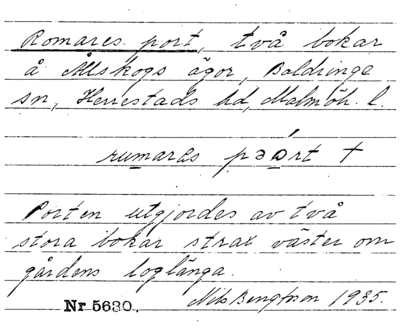 Romares port, två bokar
å Ålskogs ägor, Baldringe
sn, Herrestads hd, Malmöh. l.
rumares pəɒ́rt +
Porten utgjordes av två
stora bokar strax väster om
gårdens loglänga.
Nr 5630. Nils Bengtson 1935.